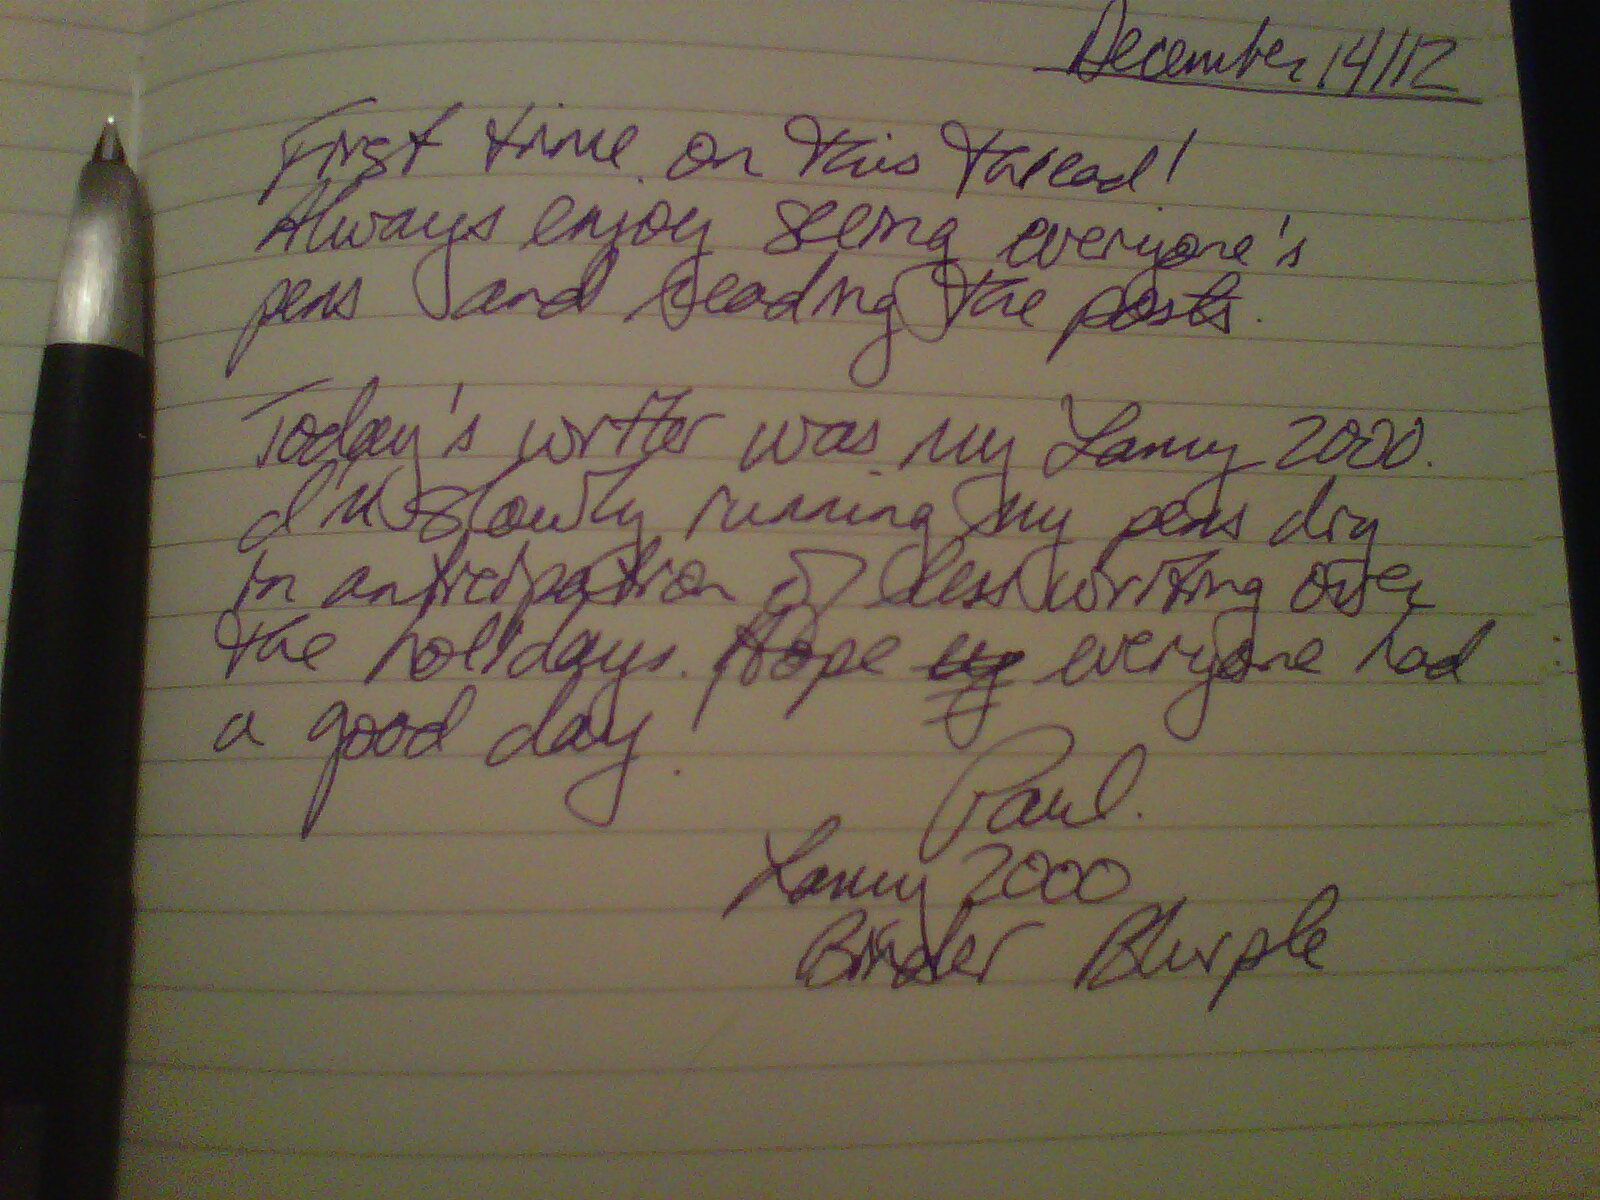 December 14/12
First time on this thread!
Always enjoy seeing everyone's
pens and reading the posts.
Today's writer was my Lamy 2000.
I'm slowly running my pens dry
in anticipation of less writing over
the holidays. Hope everyone had
a good day.
Paul.
Lamy 2000
Binder Blurple